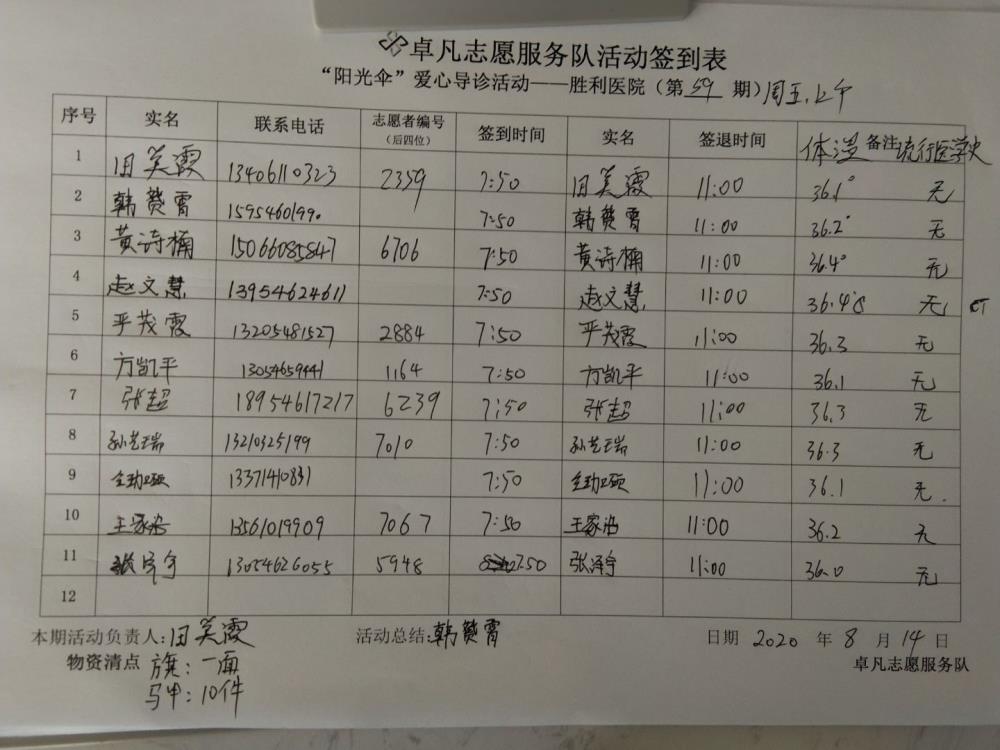 卓凡志愿服务队活动签到表
“阳光伞”爱心导诊活动——胜利医院（第59期）周五,上午
序号 实名 联系电话 志愿者编号（后四位） 签到时间 实名 签退时间 体温 备注 流行医学史
1 田芙霞 13406110323 2359 7:50 田芙霞 11:00 36.1° 无
2 韩赞霄 1595460199. 7:50 韩赞霄 11:00 36.2° 无
3 黄诗楠 15066085847 6706 7:50 黄诗楠 11:00 36.4° 无
4 赵文慧 13954624611 7:50 赵文慧 11:00 36.48 无
5 严茂霞 13205481527 2884 7:50 严茂霞 11:00 36.3 无
6 方凯平 13054659441 1164 7:50 方凯平 11:00 36.1 无
7 张超 18954617217 6239 7:50 张超 11:00 36.3 无
8 孙艺瑞 13210325199 7010 7:50 孙艺瑞 11:00 36.3 无
9 13371410831 7:50 11:00 36.1 无.
10 王家浩 13561019909 7067 7:50 王家浩 11:00 36.2 无
11 张泽宇 13054626055 5948 7:50 张泽宇 11:00 36.0 无
12
本期活动负责人:田芙霞 活动总结:韩赞霄 日期 2020 年 8 月 14 日
物资清点 旗:一面 卓凡志愿服务队
马甲:10件